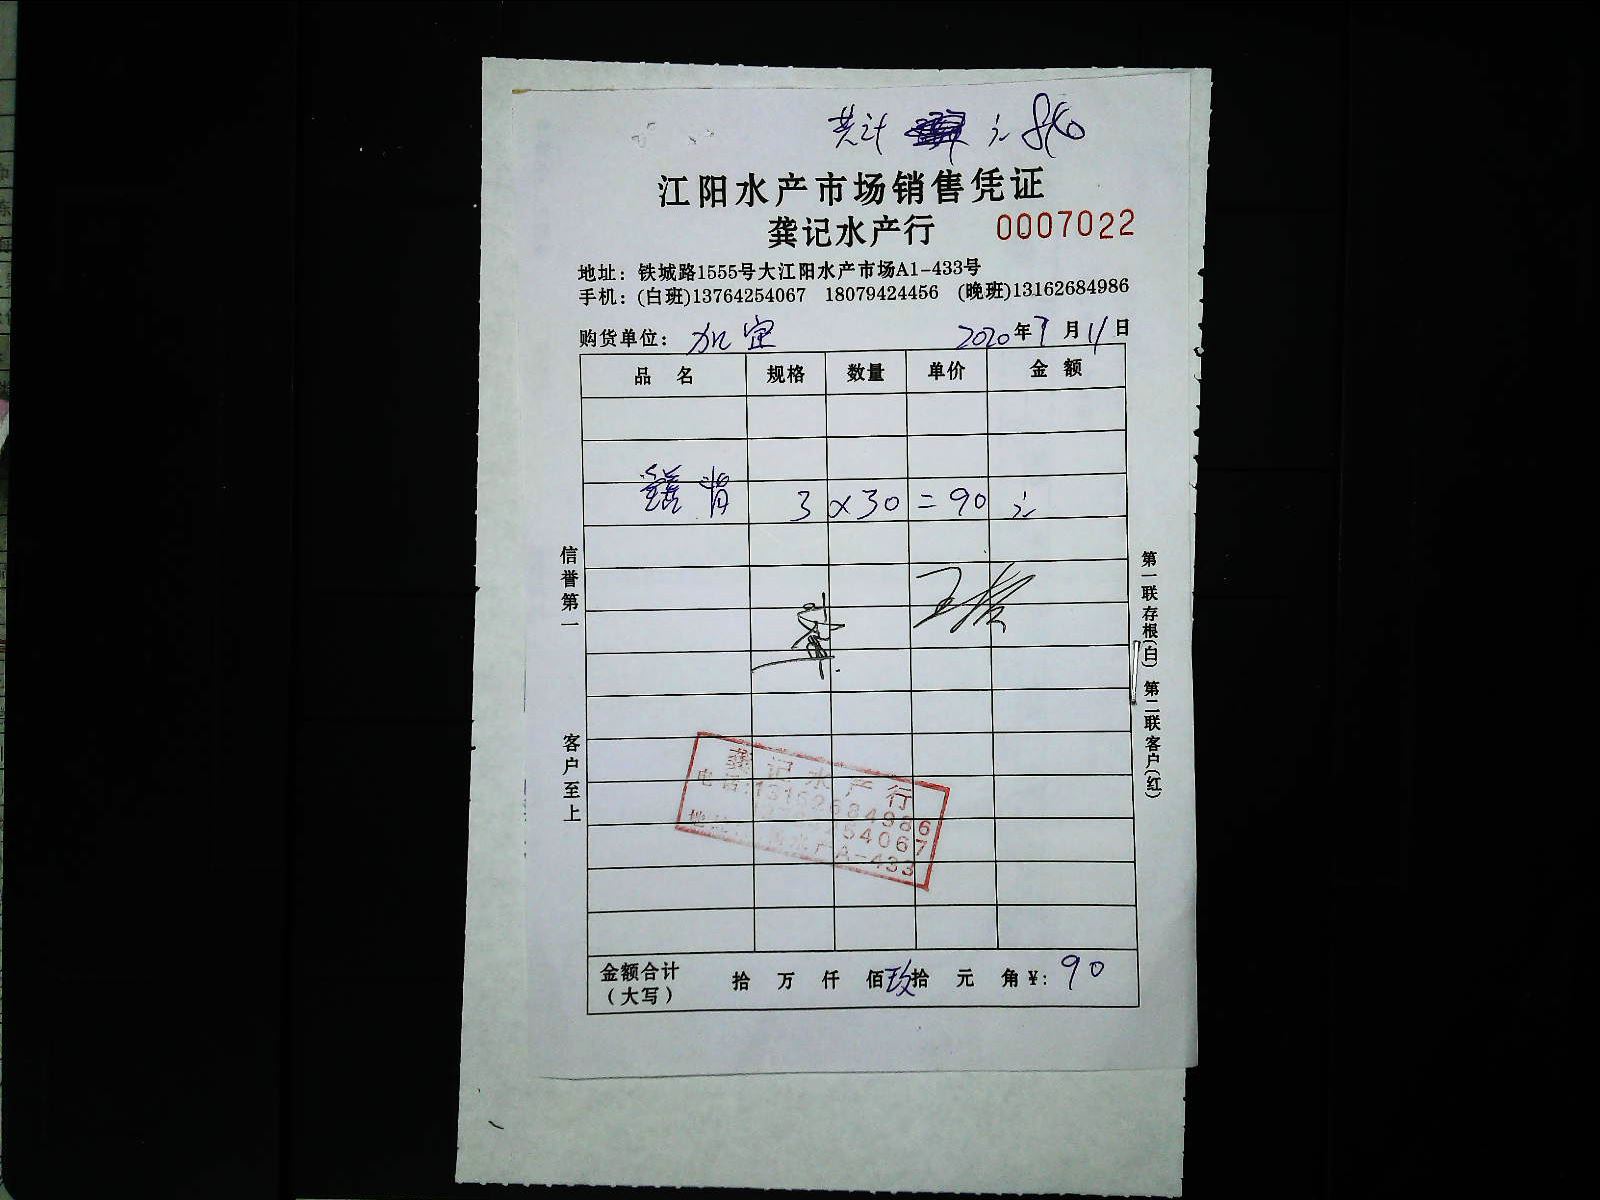 共计 元
江阳水产市场销售凭证
龚记水产行 0007022
地址：铁城路1555号大江阳水产市场A1-433号
手机：(白班)13764254067 18079424456 (晚班)13162684986
购货单位：加宜 2020年7月11日
品名 规格 数量 单价 金额
鳝背 3×30=90元
信誉第一 客户至上
第一联存根(白) 第二联客户(红)
龚记水产行
电话:13162684986
54067
A-433
金额合计（大写） 拾 万 仟 佰 玖拾 元 角 ¥: 90